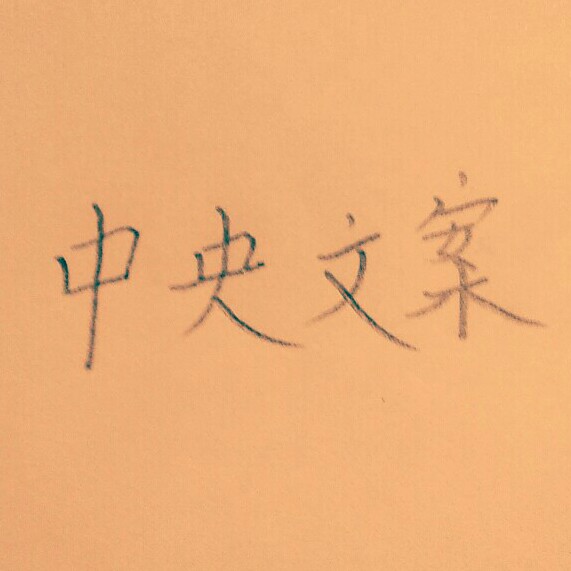 中央文案